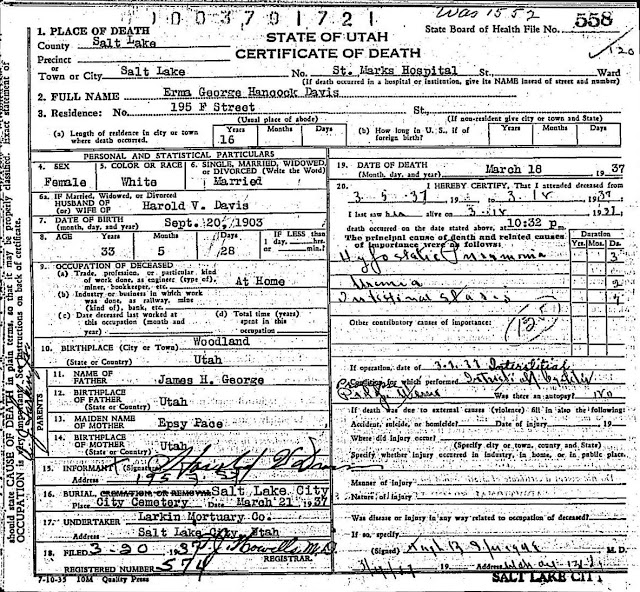 1003701721
Was 1552
558
1. PLACE OF DEATH
County Salt Lake
STATE OF UTAH
State Board of Health File No.
CERTIFICATE OF DEATH
120
Precinct
or
Town or City Salt Lake No. St. Marks Hospital St. Ward
(If death occurred in a hospital or institution, give its NAME instead of street and number)
2. FULL NAME Erma George Hancock Davis
3. Residence: No. 195 F Street St.
(Usual place of abode) (If non-resident give city or town and State)
(a) Length of residence in city or town where death occurred. Years 16 Months Days
(b) How long in U. S., if of foreign birth? Years Months Days
PERSONAL AND STATISTICAL PARTICULARS
4. SEX Female
5. COLOR OR RACE White
6. SINGLE, MARRIED, WIDOWED, or DIVORCED (Write the Word) Married
6a. If Married, Widowed, or Divorced
HUSBAND OF
(or) WIFE OF Harold V. Davis
7. DATE OF BIRTH
(month, day, and year) Sept. 20, 1903
8. AGE Years 33 Months 5 Days 28 IF LESS than 1 day, hrs. or min.?
9. OCCUPATION OF DECEASED
(a) Trade, profession, or particular kind of work done, as engineer (type of), miner, bookkeeper, etc. At Home
(b) Industry or business in which work was done, as railway, mine (kind of), bank, etc.
(c) Date deceased last worked at this occupation (month and year)
(d) Total time (years) spent in this occupation
10. BIRTHPLACE (City or Town) Woodland
(State or Country) Utah
PARENTS
11. NAME OF FATHER James H. George
12. BIRTHPLACE OF FATHER (State or Country) Utah
13. MAIDEN NAME OF MOTHER Epsy Pace
14. BIRTHPLACE OF MOTHER (State or Country) Utah
15. INFORMANT (Signature) Harold V Davis
Address 195 F St
16. BURIAL, CREMATION OR REMOVAL Salt Lake City
Place City Cemetery Date March 21 1937
17. UNDERTAKER Larkin Mortuary Co.
Address Salt Lake City, Utah
18. FILED 3-20 1937 M.D.
REGISTRAR.
REGISTERED NUMBER 574
7-10-35 10M Quality Press
19. DATE OF DEATH
(Month, day, and year) March 18 1937
20. I HEREBY CERTIFY, That I attended deceased from
3-5-37 19 to 3-18 1937
I last saw h alive on 3-18 1937
death occurred on the date stated above, at 10:32 pm.
The principal cause of death and related causes of importance were as follows:
Duration
Yrs. Mos. Ds.
Hypostatic Pneumonia 3
Uremia 2
Intestinal
Other contributory causes of importance:
If operation, date of 3-7-37
Condition for which performed
Was there an autopsy? no
If death was due to external causes (violence) fill in also the following:
Accident, suicide, or homicide? Date of injury 19
Where did injury occur?
(Specify city or town, county and State)
Specify whether injury occurred in industry, in home, or in public place.
Manner of injury
Nature of injury
Was disease or injury in any way related to occupation of deceased?
If so, specify
(Signed) M. D.
19 Address
SALT LAKE CITY
should state CAUSE OF DEATH in plain terms, so that it may be properly classified. Exact statement of OCCUPATION is very important. See instructions on back of certificate.